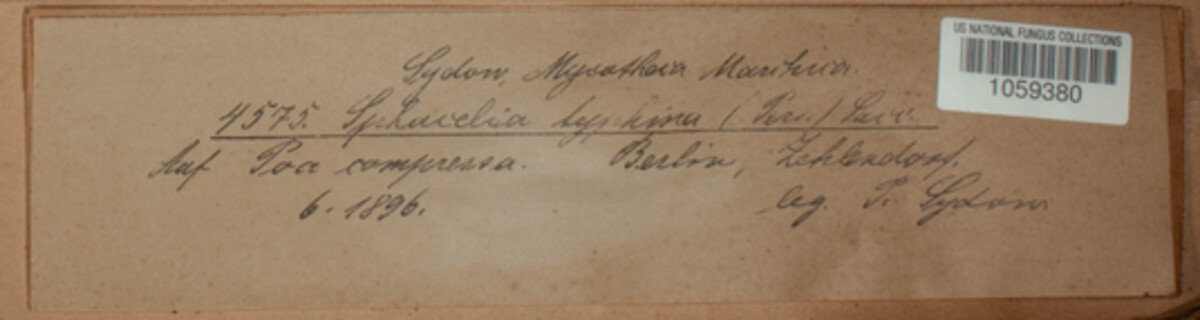 Sydow, Mycotheca Marchica.
4575. Sphacelia typhina (Pers.) Sacc.
Auf Poa compressa. Berlin, Zehlendorf.
6. 1896. leg. P. Sydow
US NATIONAL FUNGUS COLLECTIONS
1059380